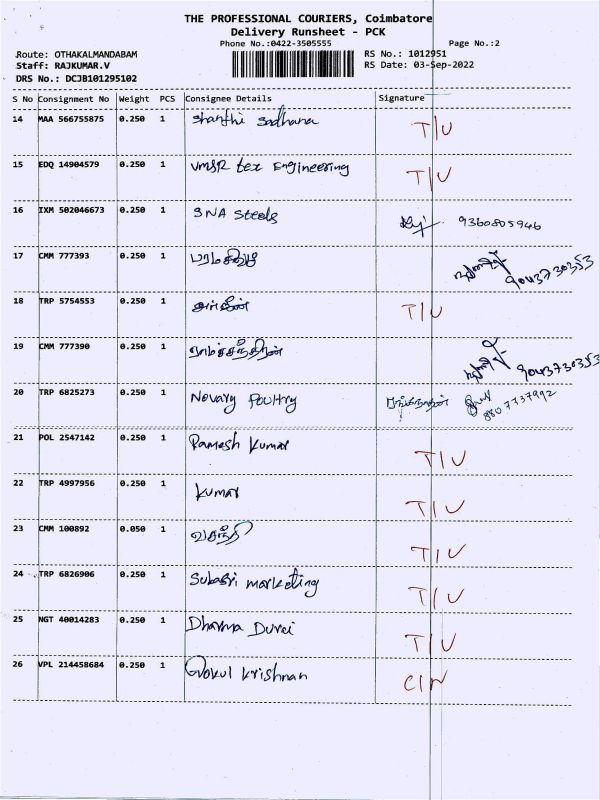 THE PROFESSIONAL COURIERS, Coimbatore
Delivery Runsheet - PCK
Phone No.:0422-3505555 Page No.:2
Route: OTHAKALMANDABAM RS No.: 1012951
Staff: RAJKUMAR.V RS Date: 03-Sep-2022
DRS No.: DCJB101295102
S No Consignment No Weight PCS Consignee Details Signature
14 MAA 566755875 0.250 1 Shanthi Sadhana T/U
15 EDQ 14904579 0.250 1 VMSR tex Engineering T/U
16 IXM 502046673 0.250 1 SNA Steels 9360805946
17 CMM 777393 0.250 1 9043730353
18 TRP 5754553 0.250 1 T/U
19 CMM 777390 0.250 1 ராமச்சந்திரன் 9043730353
20 TRP 6825273 0.250 1 Novary Poultry 8807737992
21 POL 2547142 0.250 1 Ramesh Kumar T/U
22 TRP 4997956 0.250 1 Kumar T/U
23 CMM 100892 0.050 1 வசந்தி T/U
24 TRP 6826906 0.250 1 Subasri marketing T/U
25 NGT 40014283 0.250 1 Dharma Durai T/U
26 VPL 214458684 0.250 1 Gokul Krishnan C/N